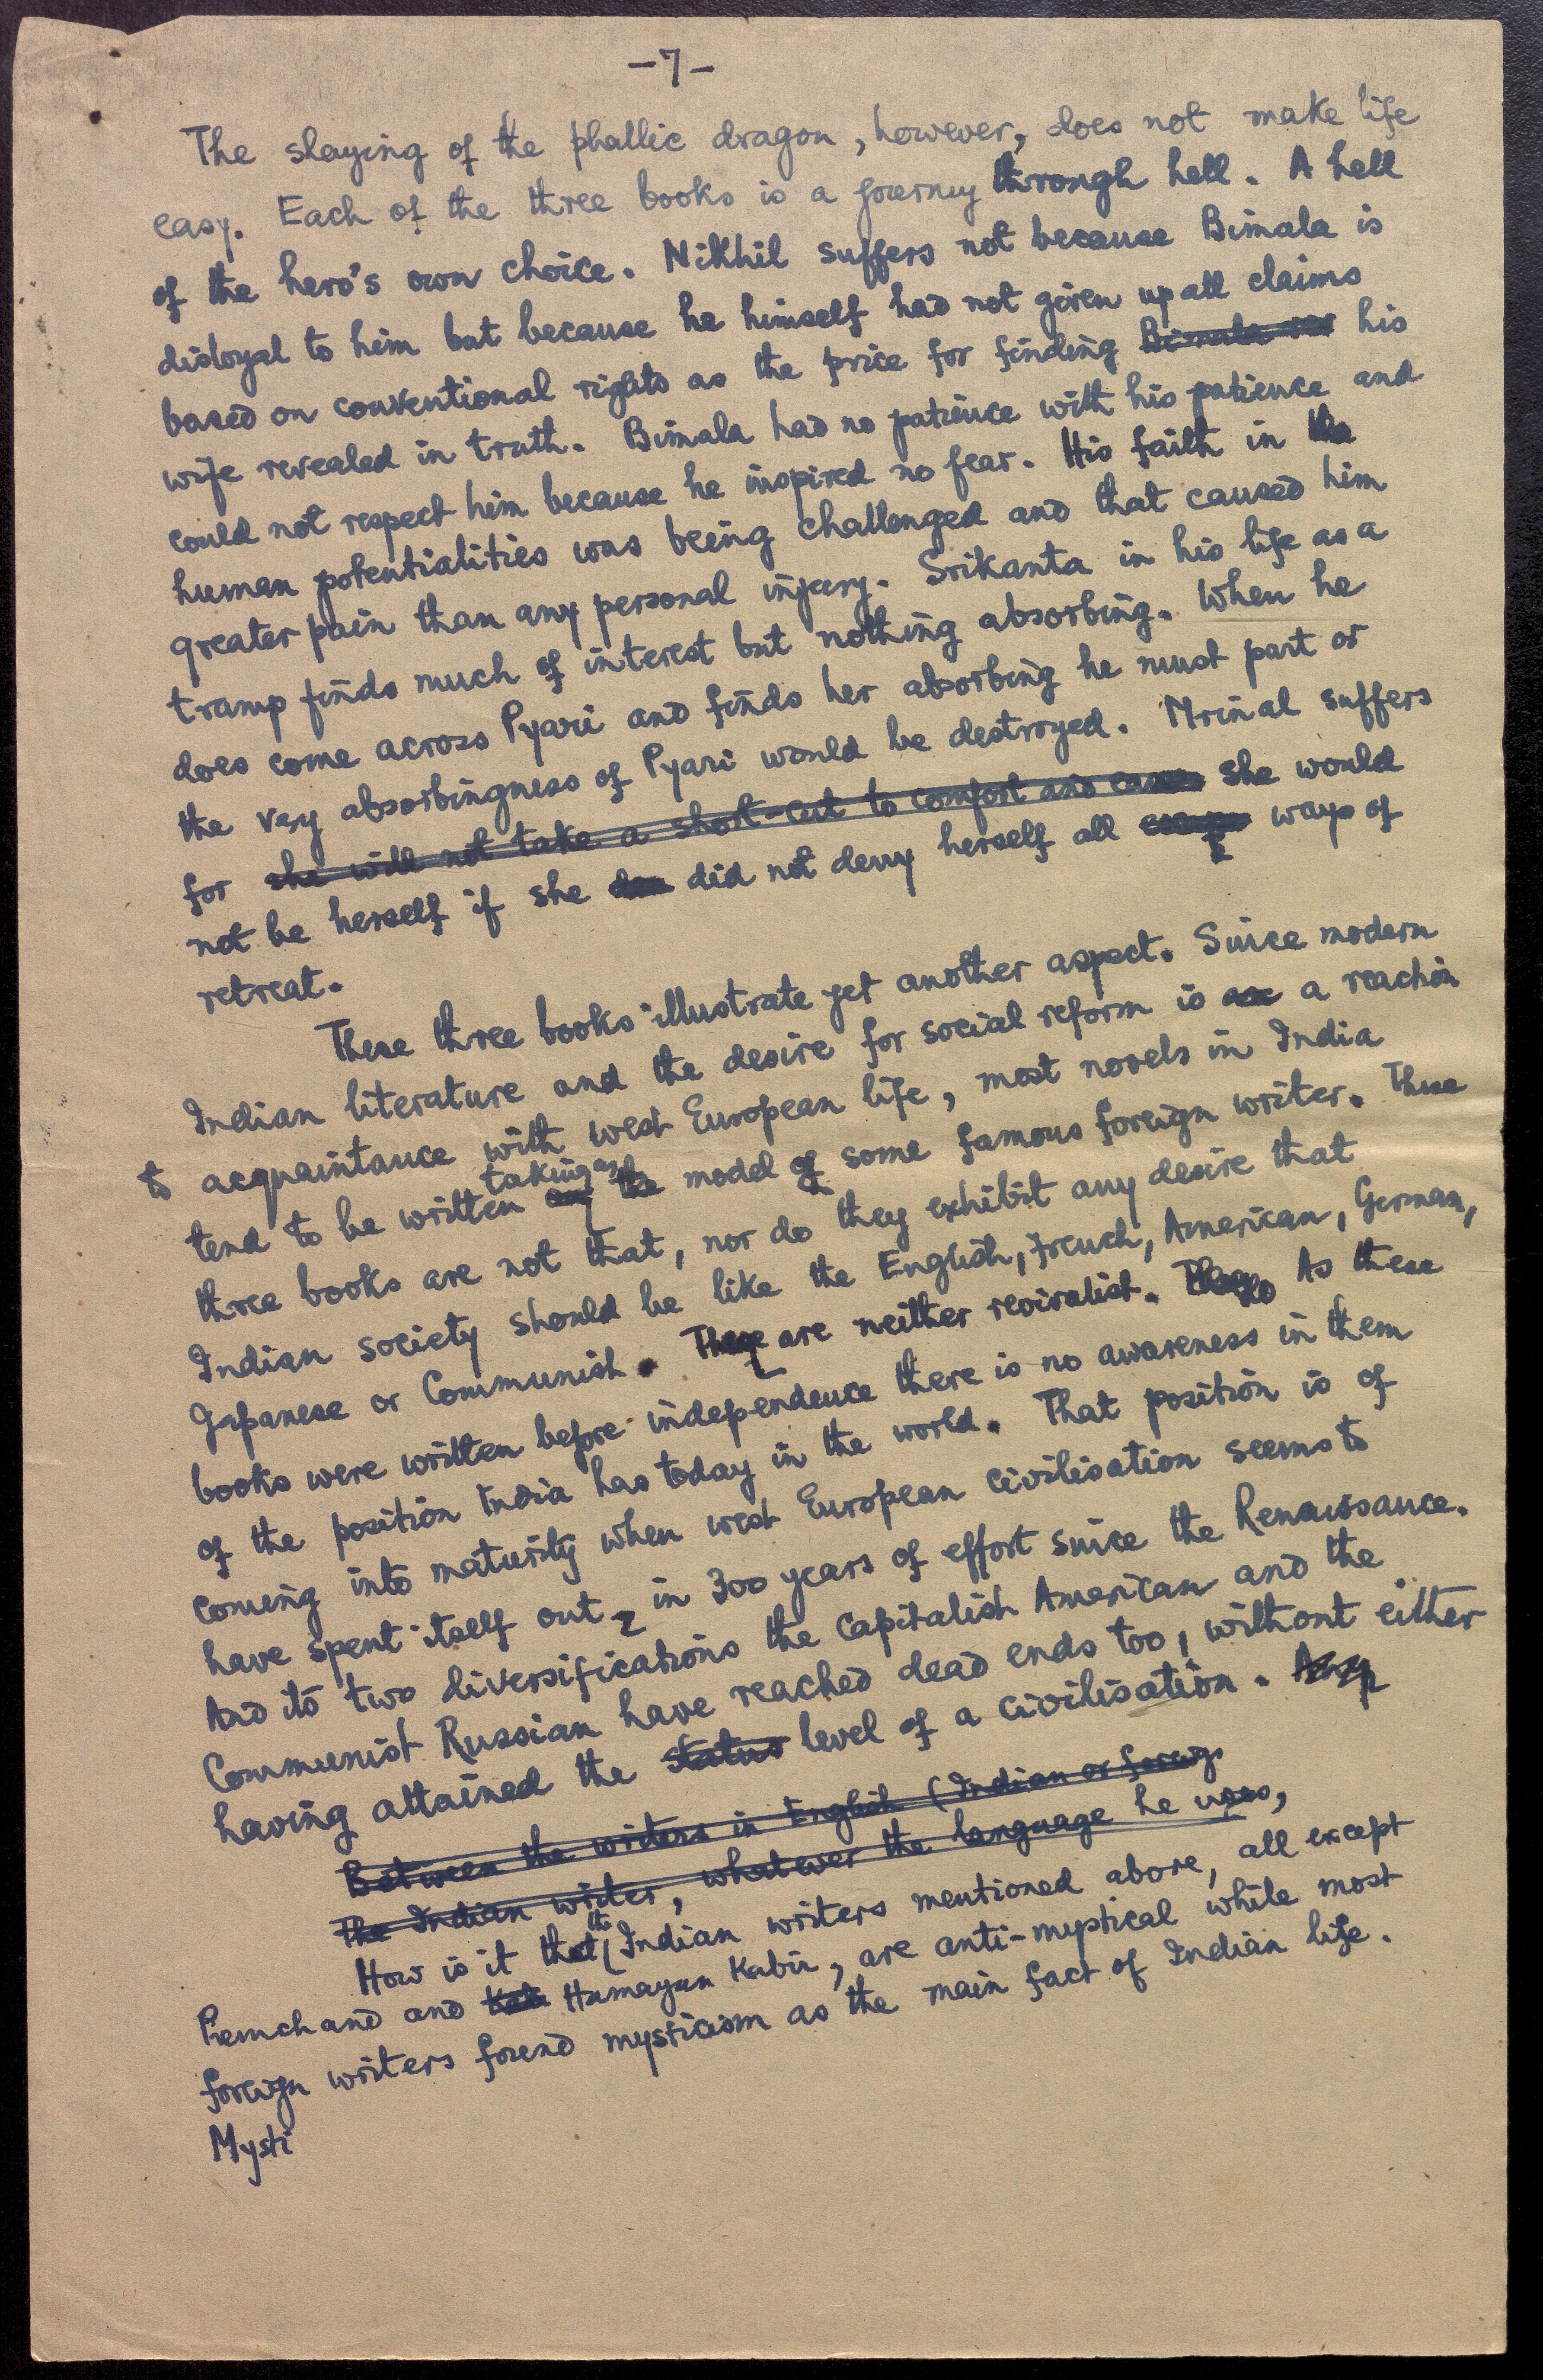 -7-
The slaying of the phallic dragon, however, does not make life
easy. Each of the three books is a journey through hell. A hell
of the hero's own choice. Nikhil suffers not because Bimala is
disloyal to him but because he himself had not given up all claims
based on conventional rights as the price for finding Bimala his
wife revealed in truth. Bimala had no patience with his patience and
could not respect him because he inspired no fear. His faith in the
human potentialities was being challenged and that caused him
greater pain than any personal injury. Srikanta in his life as a
tramp finds much of interest but nothing absorbing. When he
does come across Pyari and finds her absorbing he must part or
the very absorbingness of Pyari would be destroyed. Mrinal suffers
for she will not take a short-cut to comfort and ease she would
not be herself if she did not deny herself all ways of
retreat.
These three books illustrate yet another aspect. Since modern
Indian literature and the desire for social reform is a reaction
to acquaintance with west European life, most novels in India
taking as
tend to be written the model of some famous foreign writer. These
three books are not that, nor do they exhibit any desire that
Indian society should be like the English, French, American, German,
Japanese or Communist. They are neither revivalist. As these
books were written before independence there is no awareness in them
of the position India has today in the world. That position is of
coming into maturity when west European civilisation seems to
have spent itself out, in 300 years of effort since the Renaissance.
And its two diversifications the capitalist American and the
Communist Russian have reached dead ends too, without either
having attained the status level of a civilisation.
Between the writers in English (Indian or foreig
The Indian writer, whatever the language he uses,
How is it that the Indian writers mentioned above, all except
Premchand and Humayun Kabir, are anti-mystical while most
foreign writers found mysticism as the main fact of Indian life.
Mysti